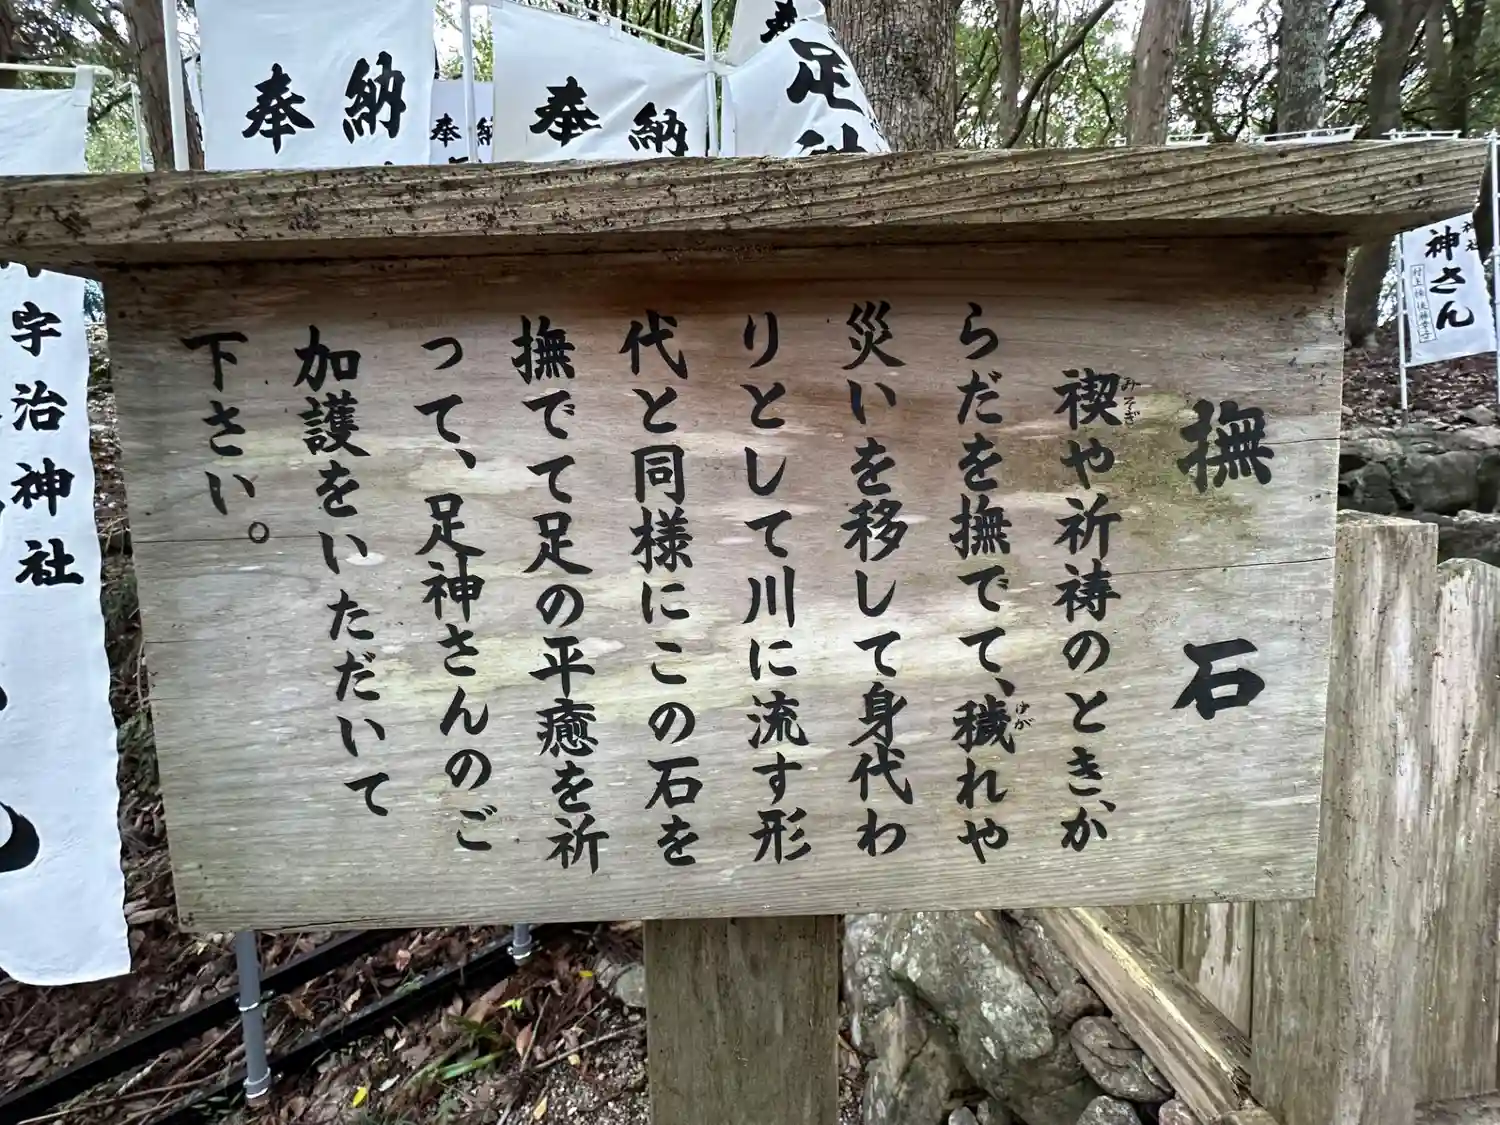 撫石
禊や祈祷のとき、か
みそぎ
らだを撫でて、穢れや
けが
災いを移して身代わ
りとして川に流す形
代と同様にこの石を
撫でて足の平癒を祈
って、足神さんのご
加護をいただいて
下さい。
奉納
奉納
奉納
足神
宇治神社
神社
神さん